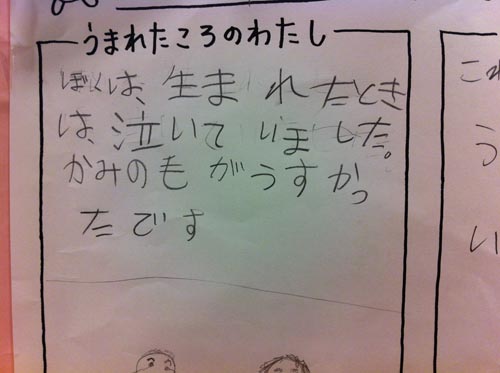 うまれたころのわたし
ぼくは、生まれたとき
は、泣いていました。
かみのもがうすかっ
たです
これ
う
い